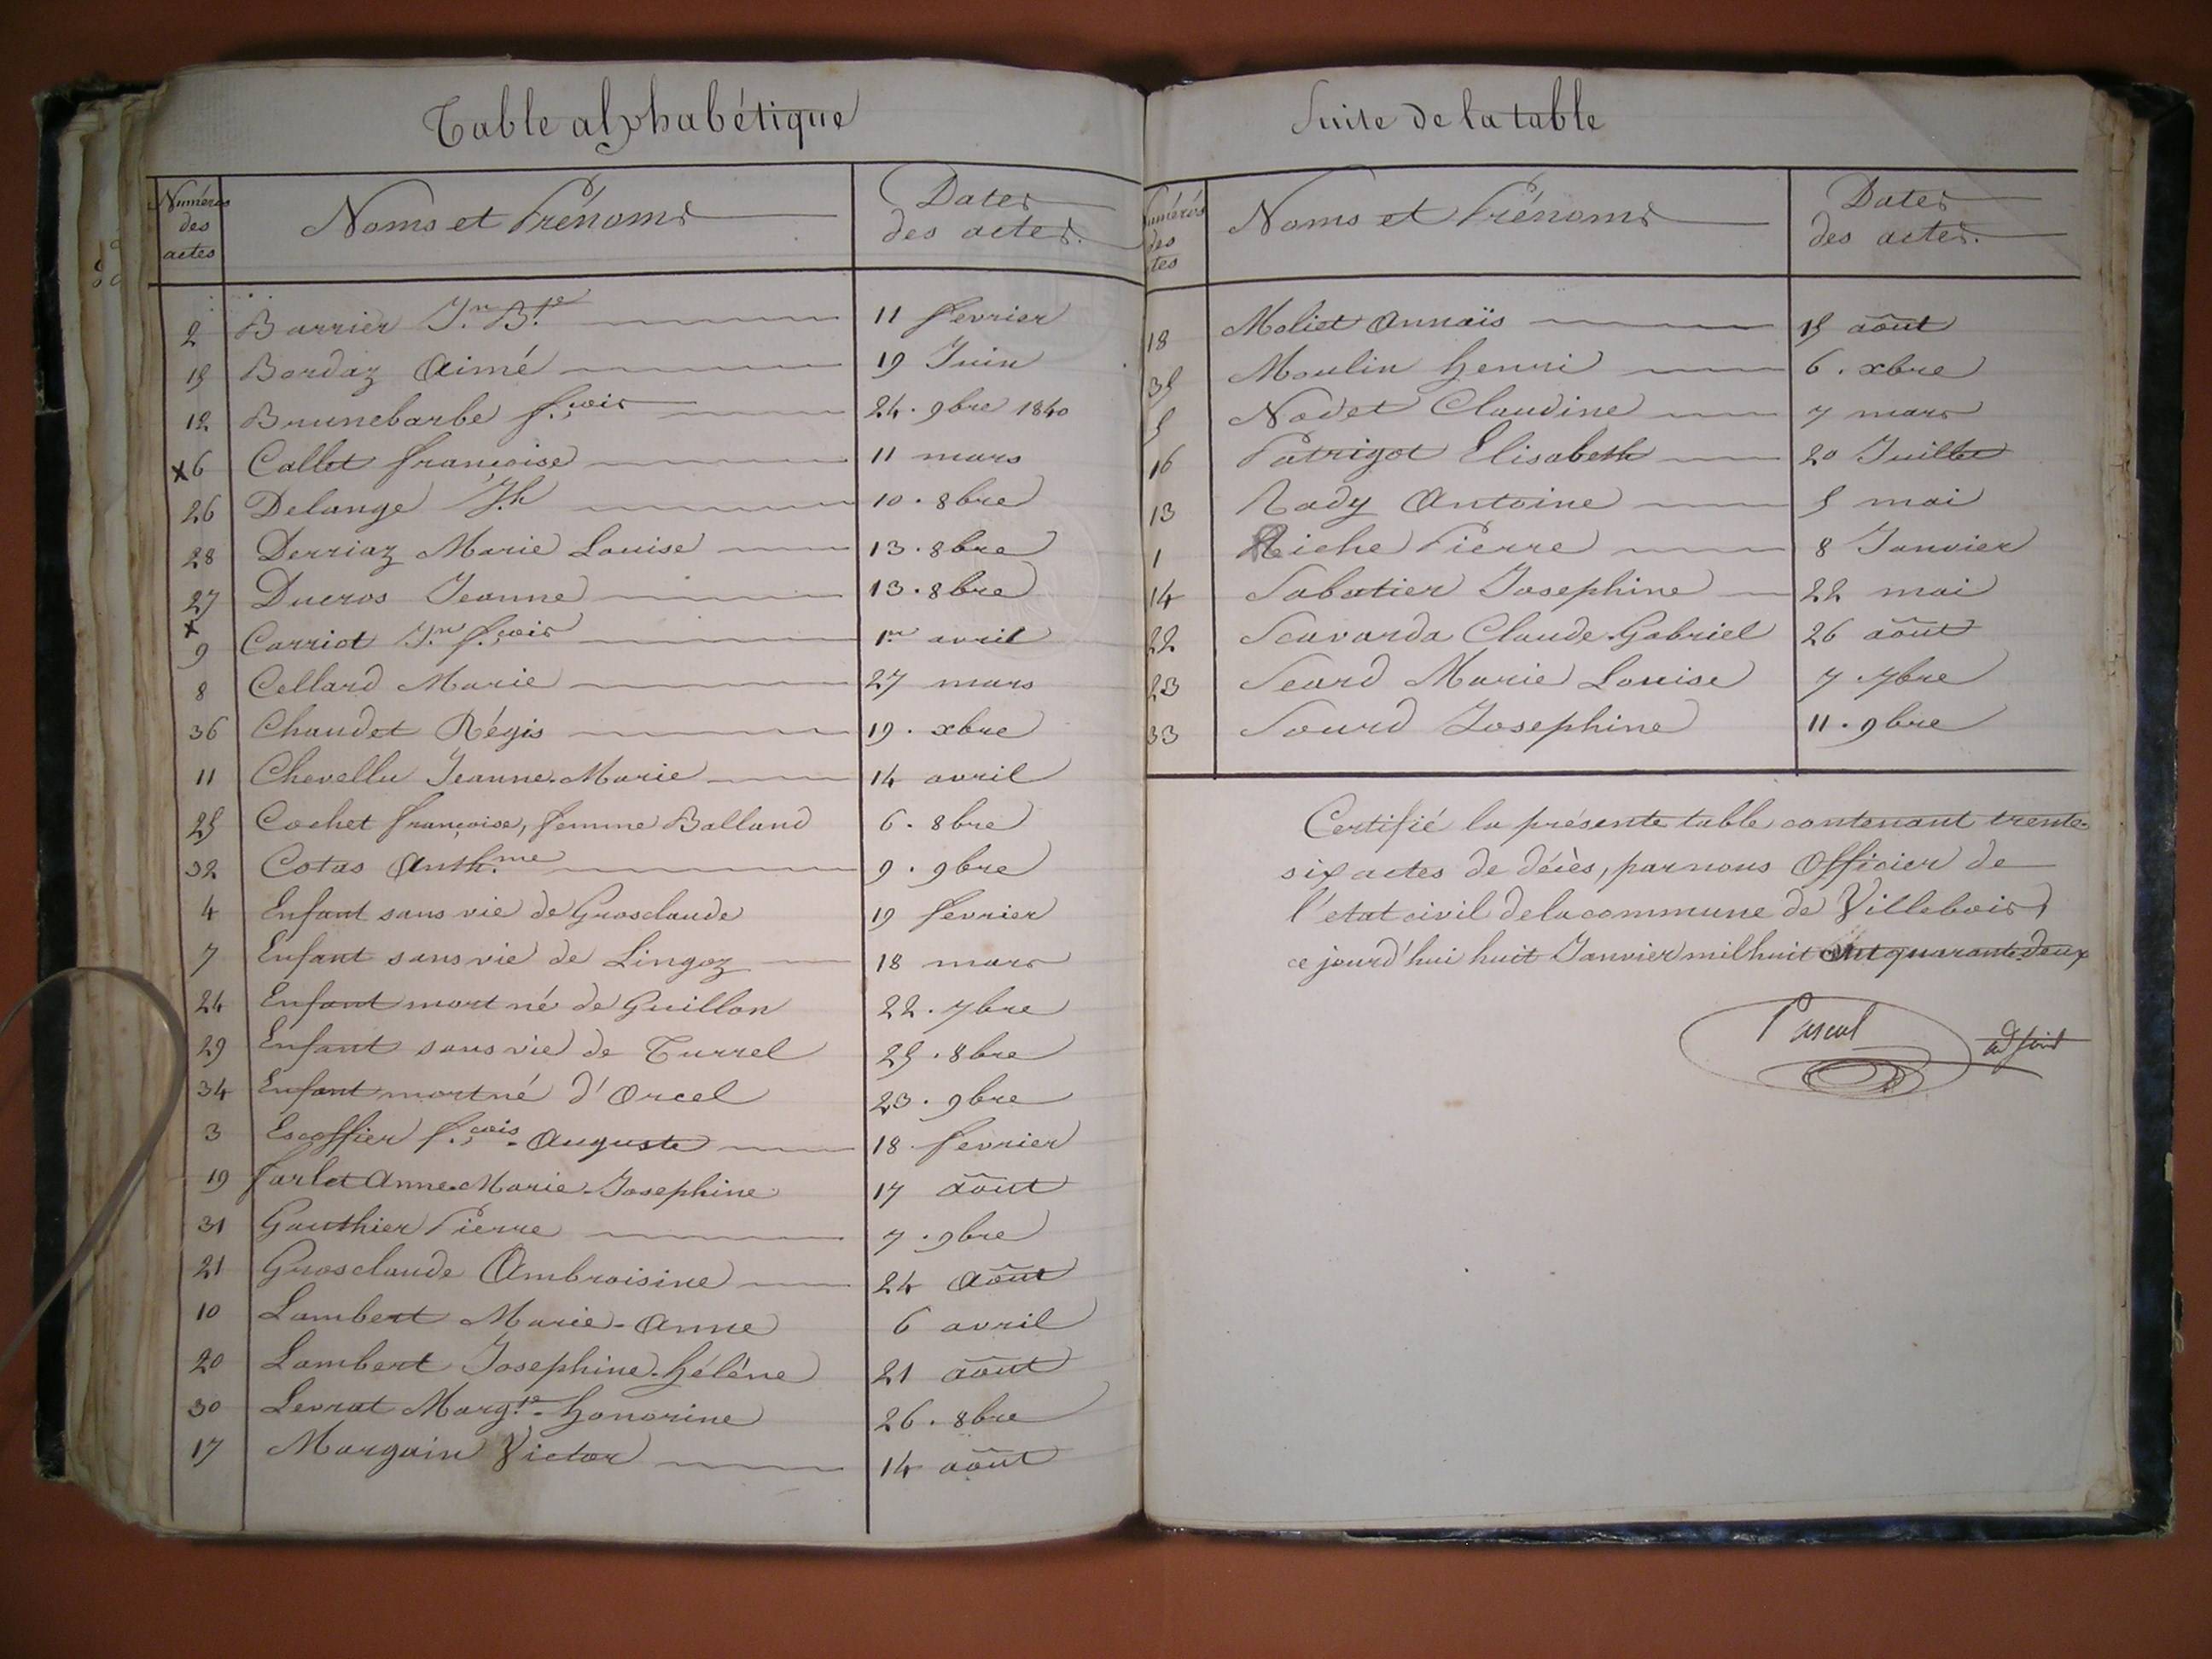 Table alphabétique
Numéros des actes Noms et Prénoms Dates des actes.
2 Barrier Jn. Bte. 11 fevrier
15 Bordaz Aimé 19 Juin
12 Brunebarbe f.çois 24. 9bre 1840
x6 Callet françoise 11 mars
26 Delange Jh 10. 8bre
28 Derriaz Marie Louise 13. 8bre
27 Ducros Jeanne 13. 8bre
x 9 Carriot Jn. f.çois 1er avril
8 Cellard Marie 27 mars
36 Chaudet Régis 19. xbre
11 Chevellu Jeanne-Marie 14 avril
25 Cochet françoise, femme Balland 6. 8bre
32 Cotas Anth.me 9. 9bre
4 Enfant sans vie de Grosclaude 19 fevrier
7 Enfant sans vie de Lingoz 18 mars
24 Enfant mort né de Guillon 22. 7bre
29 Enfant sans vie de Turrel 25. 8bre
34 Enfant mort né d'Orcel 23. 9bre
3 Escoffier f.çois-Auguste 18 fevrier
19 farlet Anne-Marie-Josephine 17 août
31 Gauthier Pierre 7. 9bre
21 Grosclaude Ambroisine 24 août
10 Lambert Marie-Anne 6 avril
20 Lambert Josephine-hélène 21 août
30 Levrat Margte-honorine 26. 8bre
17 Margain Victor 14 août
Suite de la table
Numéros des actes Noms et Prénoms Dates des actes.
18 Moliet Annaïs 15 août
35 Moulin henri 6. xbre
5 Nodet Claudine 7 mars
16 Patrigot Elisabeth 20 Juillet
13 Rady Antoine 5 mai
1 Riche Pierre 8 Janvier
14 Sabatier Josephine 22 mai
22 Scavarda Claude-Gabriel 26 août
23 Seard Marie Louise 7. 7bre
33 Sourd Josephine 11. 9bre
Certifié la présente table contenant trente-
six actes de décès, par nous Officier de
l'etat civil de la commune de Villebois,
ce jourd'hui huit Janvier mil huit cent quarante-deux
Pascal adjoint